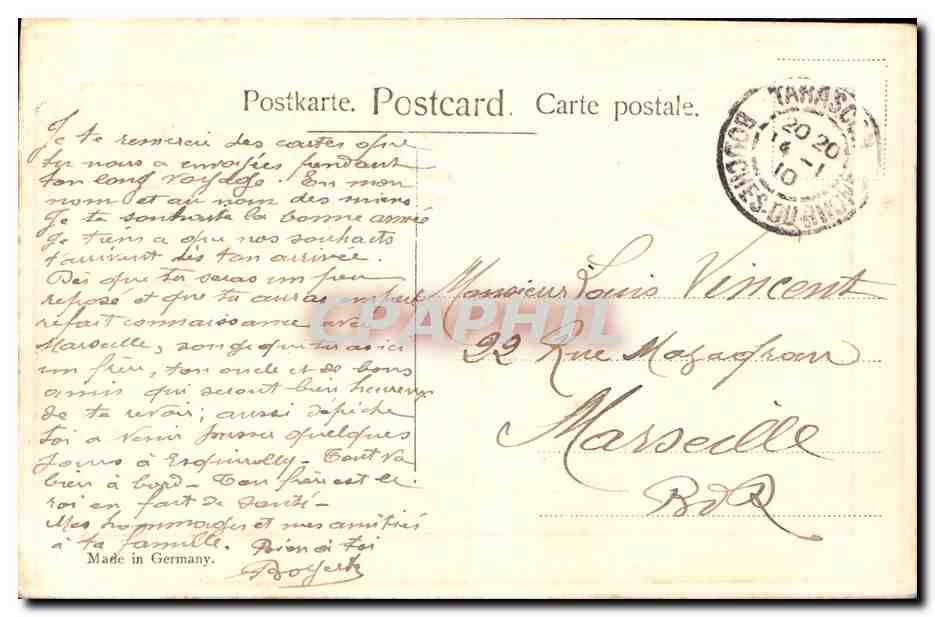 Postkarte. Postcard. Carte postale.
TARASCON
BOUCHES-DU-RHONE
20 20
4 - 1
10
Je te remercie des cartes que
tu nous a envoyées pendant
ton long voyage. En mon
nom et au nom des miens
Je te souhaite la bonne année
Je tiens a que nos souhaits
t'arrivent dès ton arrivée.
Dès que tu seras un peu
reposé et que tu auras un peu
refait connaissance avec
Marseille, songe que tu as ici
un frère, ton oncle et de bons
amis qui seront bien heureux
de te revoir; aussi dépêche
toi a venir passer quelques
jours à - Tout va
bien à bord - Ton frère est le
roi en fait de santé -
Mes hommages et mes amitiés
à ta famille. Bien à toi
Monsieur Louis Vincent
22 Rue Mazagran
Marseille
B d R
Made in Germany.
CPAPHIL